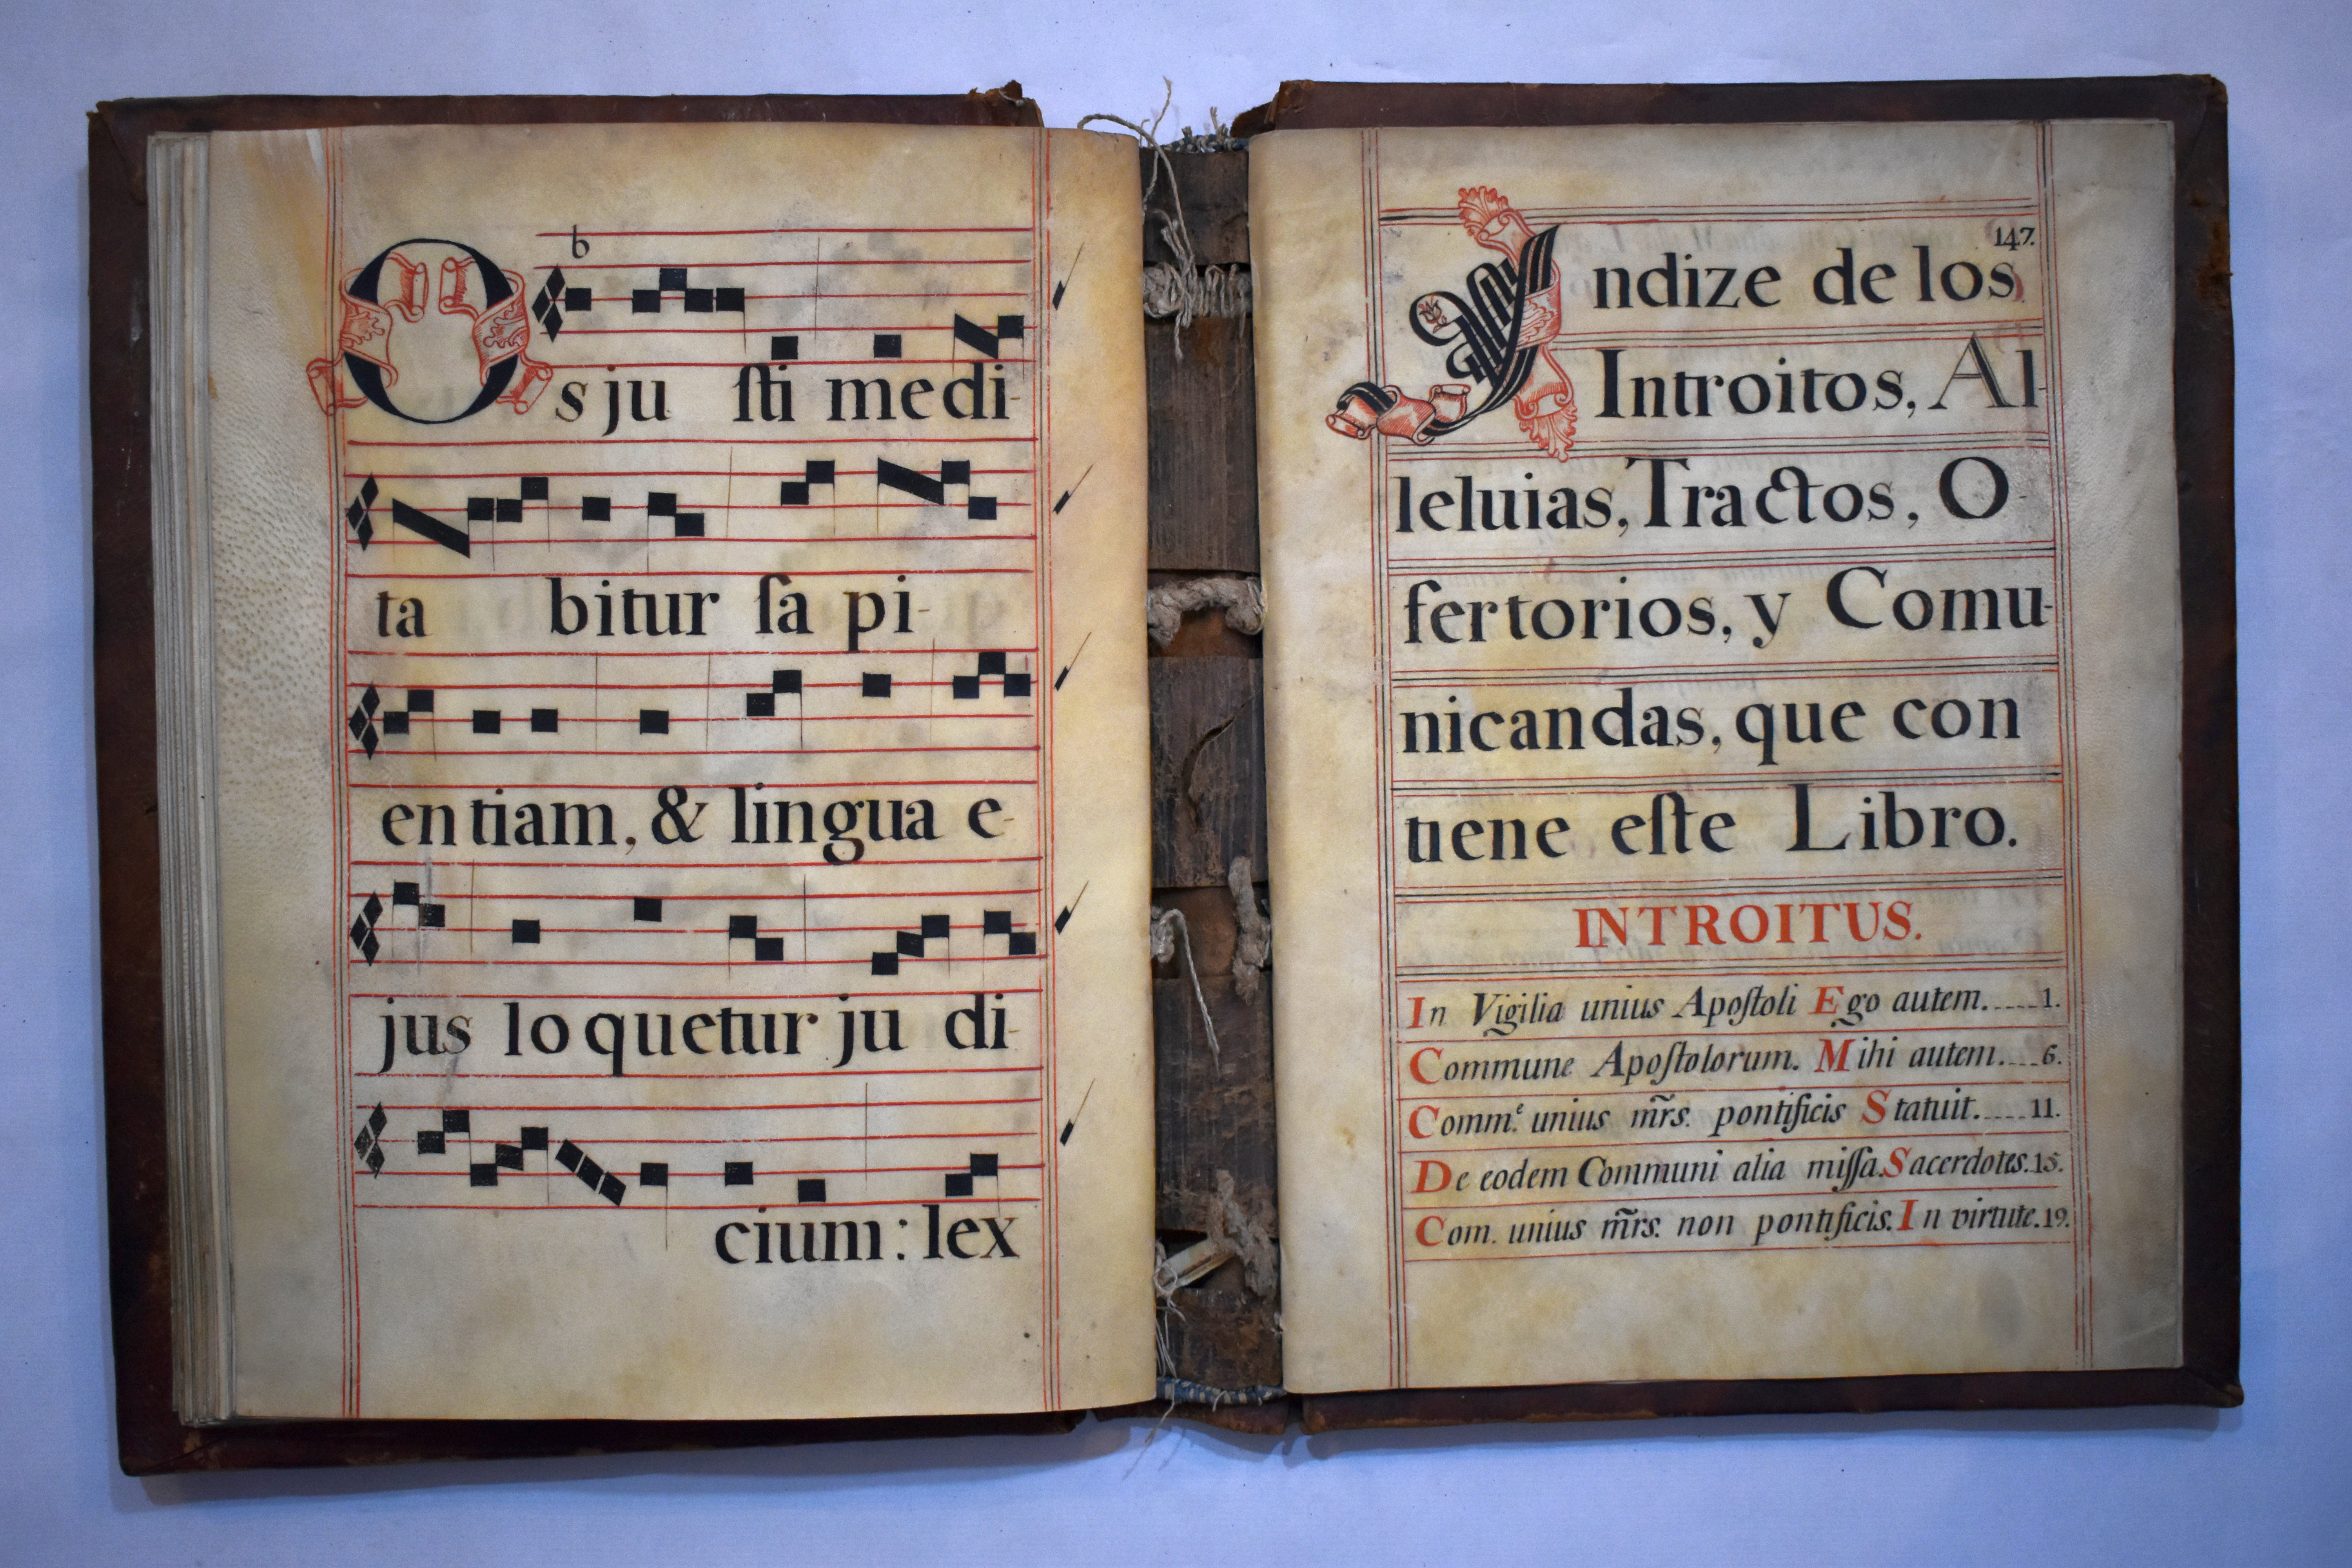 b
Os ju ſti medi-
ta bitur ſa pi-
entiam, & lingua e-
jus loquetur ju di-
cium: lex
147.
Yndize de los
Introitos, Al-
leluias, Tractos, O-
fertorios, y Comu-
nicandas, que con
tiene eſte Libro.
INTROITUS.
In Vigilia unius Apoſtoli Ego autem.....1.
Commune Apoſtolorum. Mihi autem....6.
Comm.e unius m̃rs. pontificis Statuit.....11.
De eodem Communi alia miſſa. Sacerdotes.15.
Com. unius m̃rs. non pontificis. In virtute.19.